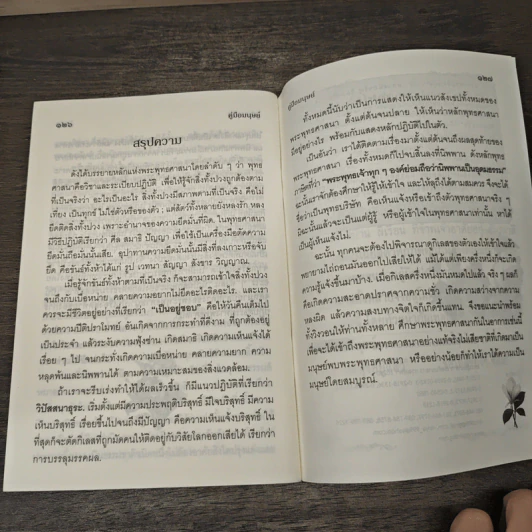 ๑๒๖
คู่มือมนุษย์
สรุปความ
ดังได้บรรยายหลักแห่งพระพุทธศาสนาโดยลำดับ ๆ ว่า พุทธ
ศาสนาคือวิชาและระเบียบปฏิบัติ เพื่อให้รู้จักสิ่งทั้งปวงถูกต้องตาม
ที่เป็นจริงว่า อะไรเป็นอะไร สิ่งทั้งปวงมีสภาพตามที่เป็นจริง คือไม่
เที่ยง เป็นทุกข์ ไม่ใช่ตัวหรือของตัว ; แต่สัตว์ทั้งหลายยังหลงรัก หลง
ยึดติดสิ่งทั้งปวง เพราะอำนาจของความยึดมั่นที่ผิด, ในพุทธศาสนา
มีวิธีปฏิบัติเรียกว่า ศีล สมาธิ ปัญญา เพื่อใช้เป็นเครื่องมือตัดความ
ยึดมั่นถือมั่นนั้นเสีย. อุปาทานความยึดมั่นนั้นมีสิ่งที่ลงเกาะหรือจับ
ยึด คือขันธ์ทั้งห้าได้แก่ รูป เวทนา สัญญา สังขาร วิญญาณ.
เมื่อรู้จักขันธ์ทั้งห้าตามที่เป็นจริง ก็จะสามารถเข้าใจสิ่งทั้งปวง
จนถึงกับเบื่อหน่าย คลายความอยากไม่ยึดอะไรติดอะไร. และเรา
ควรจะมีชีวิตอยู่อย่างที่เรียกว่า “เป็นอยู่ชอบ” คือให้วันคืนเต็มไป
ด้วยความปีติปราโมทย์ อันเกิดจากการกระทำที่ดีงาม ที่ถูกต้องอยู่
เป็นประจำ แล้วระงับความฟุ้งซ่าน เกิดสมาธิ เกิดความเห็นแจ้งได้
เรื่อย ๆ ไป จนกระทั่งเกิดความเบื่อหน่าย คลายความอยาก ความ
หลุดพ้นและนิพพานได้ ตามความเหมาะสมของสิ่งแวดล้อม.
ถ้าเราจะรีบเร่งทำให้ได้ผลเร็วขึ้น ก็มีแนวปฏิบัติที่เรียกว่า
วิปัสสนาธุระ, เริ่มตั้งแต่มีความประพฤติบริสุทธิ์ มีใจบริสุทธิ์ มีความ
เห็นบริสุทธิ์ เรื่อยขึ้นไปจนถึงมีปัญญา คือความเห็นแจ้งบริสุทธิ์ ใน
ที่สุดก็จะตัดกิเลสที่ผูกมัดคนให้ติดอยู่กับวิสัยโลกออกเสียได้ เรียกว่า
การบรรลุมรรคผล.
คู่มือมนุษย์
๑๒๗
ทั้งหมดนี้นับว่าเป็นการแสดงให้เห็นแนวสังเขปทั้งหมดของ
พระพุทธศาสนา ตั้งแต่ต้นจนปลาย ให้เห็นว่าหลักพุทธศาสนา
มีอยู่อย่างไร พร้อมกับแสดงหลักปฏิบัติไปในตัว.
เป็นอันว่า เราได้ติดตามเรื่องมาตั้งแต่ต้นจนถึงผลสุดท้ายของ
พระพุทธศาสนา เรื่องทั้งหมดก็ไปจบสิ้นลงที่นิพพาน ดังหลักพุทธ
ภาษิตที่ว่า “พระพุทธเจ้าทุก ๆ องค์ย่อมถือว่านิพพานเป็นอุดมธรรม”
ฉะนั้นเราจักต้องศึกษาให้รู้ให้เข้าใจ และให้ลุถึงได้ตามสมควร จึงจะได้
ชื่อว่าเป็นพุทธบริษัท คือเห็นแจ้งหรือเข้าถึงตัวพุทธศาสนาจริง ๆ
มิฉะนั้นแล้วจะเป็นแต่ผู้รู้ หรือผู้เข้าใจในพุทธศาสนาเท่านั้น หาได้
เป็นผู้เห็นแจ้งไม่.
ฉะนั้น ทุกคนจะต้องไปพิจารณาดูกิเลสของตัวเองให้เข้าใจแล้ว
พยายามไถ่ถอนมันออกไปเสียให้ได้ แม้ได้แต่เพียงครึ่งหนึ่งก็จะเกิด
ความรู้แจ้งขึ้นมาบ้าง. เมื่อกิเลสครึ่งหนึ่งมันหมดไปแล้ว จริง ๆ ผลก็
คือเกิดความสะอาดปราศจากความชั่ว เกิดความสว่างจากความ
หลงผิด แล้วความสงบทางจิตใจก็เกิดขึ้นแทน. จึงขอแนะนำพร้อม
ทั้งวิงวอนให้ท่านทั้งหลาย ศึกษาพระพุทธศาสนากันในอาการเช่นนี้
เพื่อจะได้เข้าถึงพระพุทธศาสนาอย่างแท้จริงไม่เสียชาติที่เกิดมาเป็น
มนุษย์พบพระพุทธศาสนา หรืออย่างน้อยก็ทำให้เราได้ความเป็น
มนุษย์โดยสมบูรณ์.